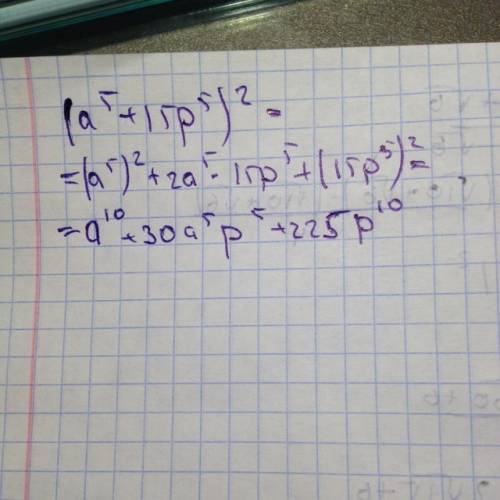 (a⁵+15p⁵)²=
=(a⁵)²+2a⁵·15p⁵+(15p⁵)²=
=a¹⁰+30a⁵p⁵+225p¹⁰